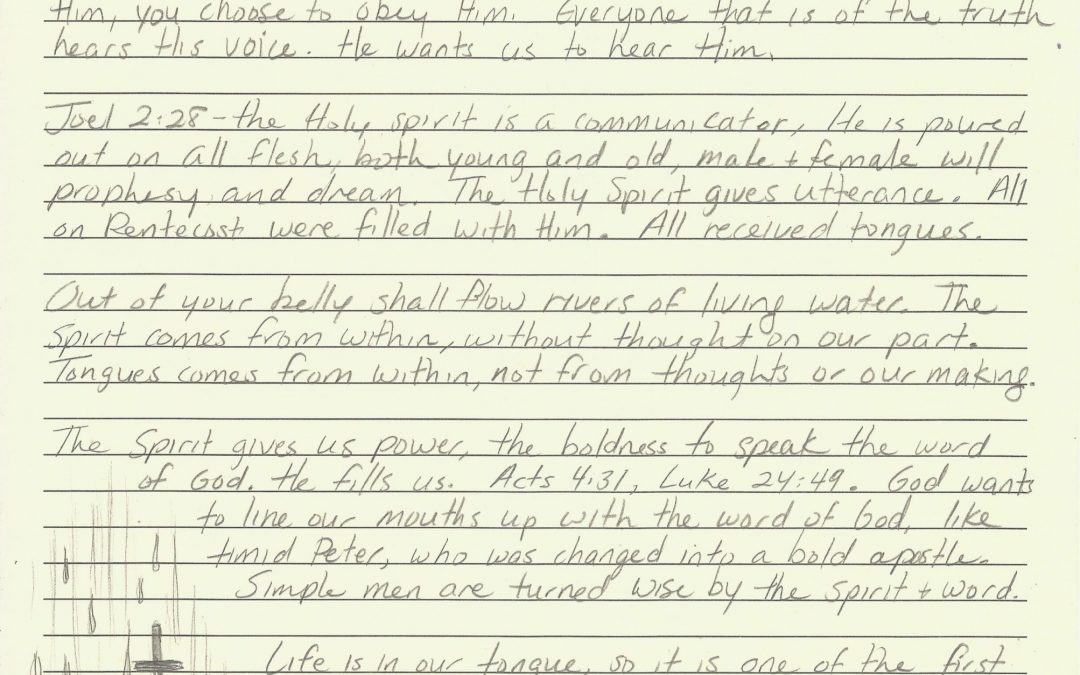 Him, you choose to obey Him. Everyone that is of the truth
hears His voice. He wants us to hear Him.
Joel 2:28 - the Holy spirit is a communicator, He is poured
out on all flesh, both young and old, male + female will
prophesy and dream. The Holy Spirit gives utterance. All
on Pentecost were filled with Him. All received tongues.
Out of your belly shall flow rivers of living water. The
Spirit comes from within, without thought on our part.
Tongues comes from within, not from thoughts or our making.
The Spirit gives us power, the boldness to speak the word
of God. He fills us. Acts 4:31, Luke 24:49. God wants
to line our mouths up with the word of God, like
timid Peter, who was changed into a bold apostle.
Simple men are turned wise by the spirit + word.
Life is in our tongue, so it is one of the first